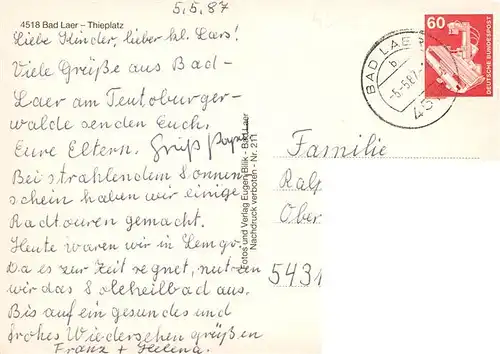 5.5.87
4518 Bad Laer – Thieplatz
Liebe Kinder, lieber kl. Lars!
Viele Grüße aus Bad-
Laer am Teutoburger-
walde senden Euch,
Eure Eltern. Gruß Papa
Bei strahlendem Sonnen
schein haben wir einige
Radtouren gemacht.
Heute waren wir in Lemgo.
Da es zur Zeit regnet, nutzen
wir das Soleheilbad aus.
Bis auf ein gesundes und
frohes Wiedersehen grüßen
Franz + Helena.
Fotos und Verlag Eugen Blik - Bad Laer
Nachdruck verboten - Nr. 211
BAD LAE
b
-5.-5.87
451
60
DEUTSCHE BUNDESPOST
Familie
Ralp
Ober
5431